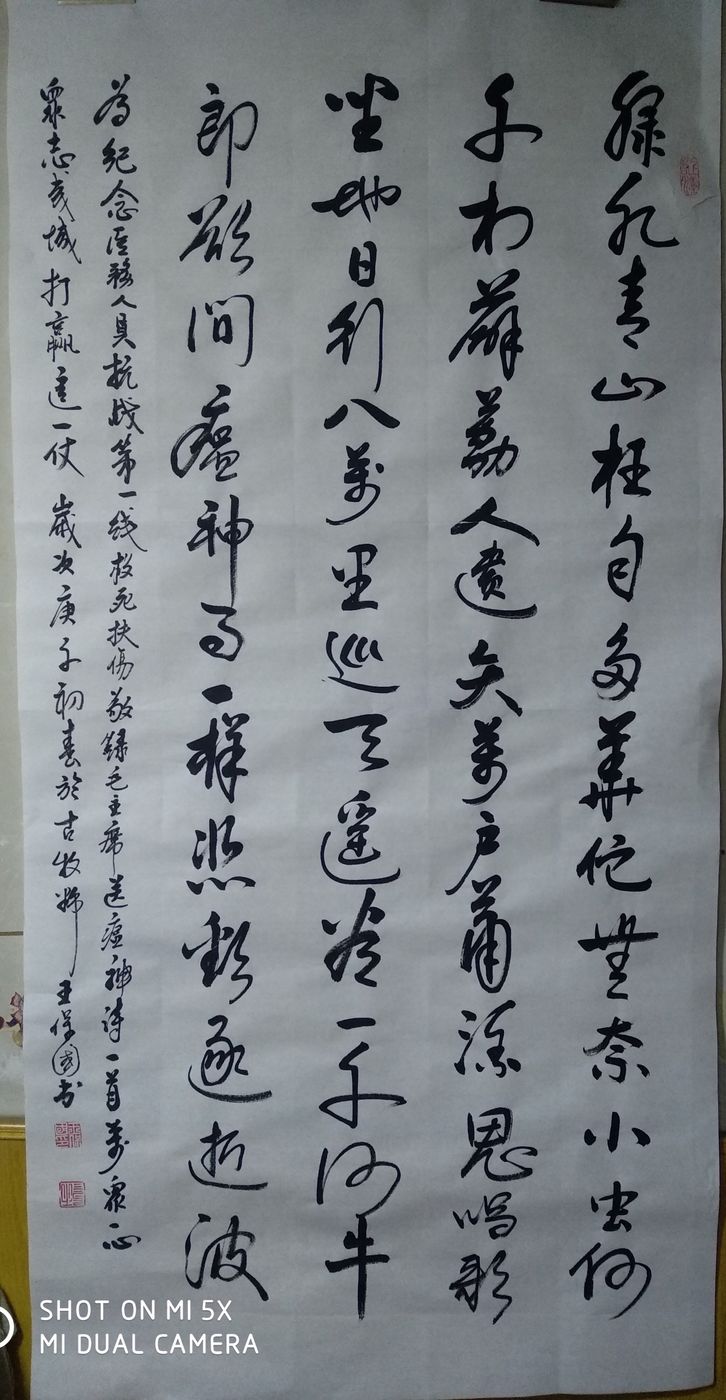 綠水青山枉自多華佗無奈小虫何
千村薜荔人遗矢萬户蕭疏鬼唱歌
坐地日行八萬里巡天遥看一千河牛
郎欲问瘟神事一样悲歡逐逝波
為紀念医務人員抗战第一线救死扶傷敬錄毛主席送瘟神诗一首萬眾一心
眾志成城打贏這一仗 歲次庚子初春於古牧野 王保国书
SHOT ON MI 5X
MI DUAL CAMERA